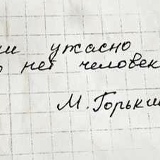 ужасно
нет человек
М. Горький